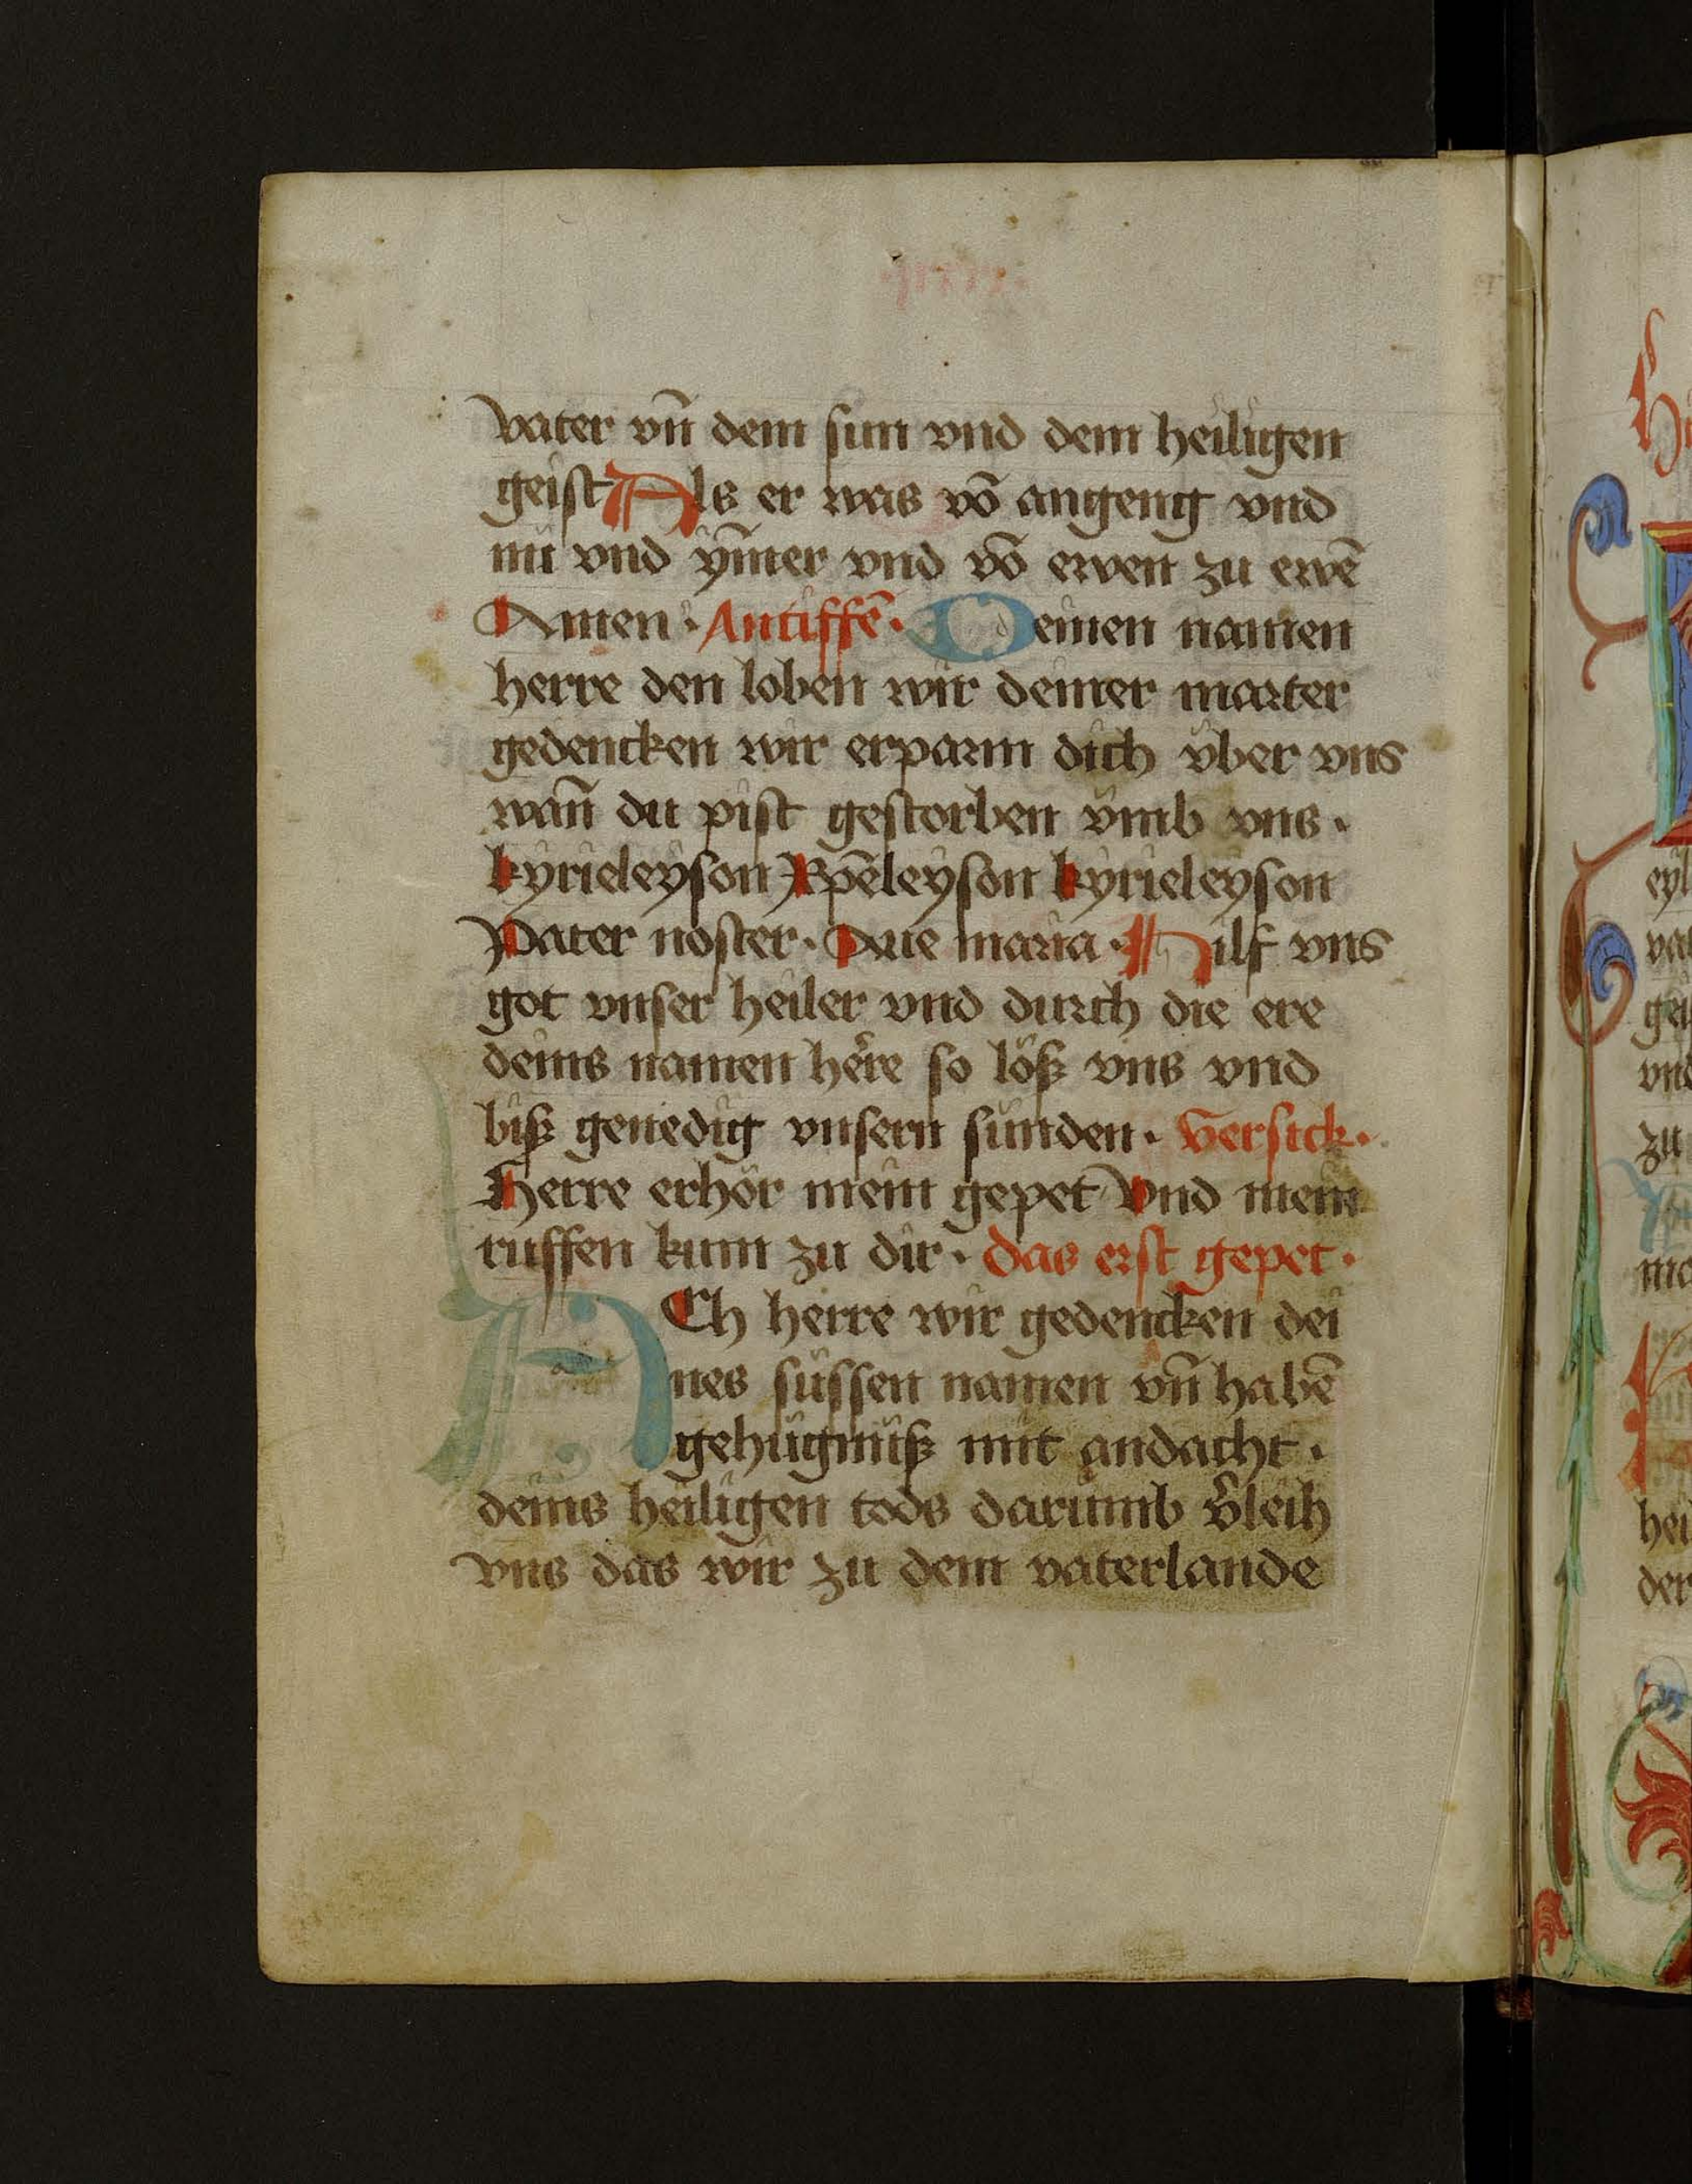 vater vn̄ dem sun vnd dem heiligen
geist Als er was vō angeng vnd
nu vnd ym̄er vnd vō ewen zu ewē
Amen · Antiffē · Deinen namen
herre den loben wir deiner marter
gedencken wir erparm dich vber vns
wan̄ du pist gestorben vmb vns ·
kyrieleyson Xpēleyson kyrieleyson
Pater noster · Aue maria · Hilf vns
got vnser heiler vnd durch die ere
deins namen here so löß vns vnd
biß genedig vnsern sünden · versick ·
Herre erhör mein gepet Vnd mein
ruffen kum zu dir · das erst gepet ·
ACh herre wir gedencken dei
nes süssen namen vn̄ habē
gehügnüß mit andacht ·
deins heiligen tods darumb v̄leih
vns das wir zu dem vaterlande